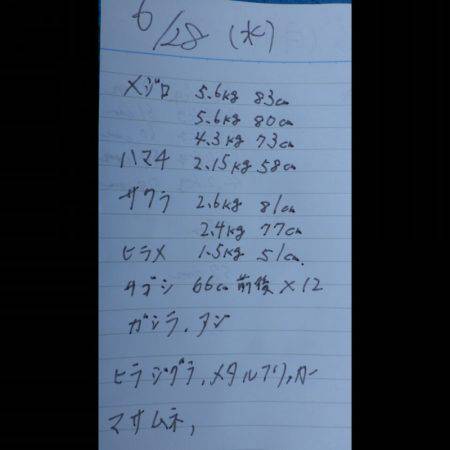 6/28 (水)
メジロ 5.6kg 83cm
5.6kg 80cm
4.3kg 73cm
ハマチ 2.15kg 58cm
サワラ 2.6kg 81cm
2.4kg 77cm
ヒラメ 1.5kg 51cm.
サゴシ 66cm前後×12
ガシラ、アジ
ヒラジグラ、メタルフリッカー
マサムネ、